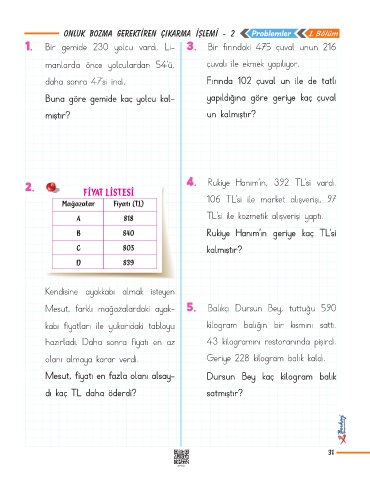 ONLUK BOZMA GEREKTİREN ÇIKARMA İŞLEMİ - 2
Problemler
1. Bölüm
1. Bir gemide 230 yolcu vardı. Li-
manlarda önce yolculardan 54'ü,
daha sonra 47'si indi.
Buna göre gemide kaç yolcu kal-
mıştır?
2.
FİYAT LİSTESİ
Mağazalar Fiyatı (TL)
A 818
B 840
C 805
D 839
Kendisine ayakkabı almak isteyen
Mesut, farklı mağazalardaki ayak-
kabı fiyatları ile yukarıdaki tabloyu
hazırladı. Daha sonra fiyatı en az
olanı almaya karar verdi.
Mesut, fiyatı en fazla olanı alsay-
dı kaç TL daha öderdi?
3. Bir fırındaki 475 çuval unun 216
çuvalı ile ekmek yapılıyor.
Fırında 102 çuval un ile de tatlı
yapıldığına göre geriye kaç çuval
un kalmıştır?
4. Rukiye Hanım'ın, 392 TL'si vardı.
106 TL'si ile market alışverişi, 97
TL'si ile kozmetik alışverişi yaptı.
Rukiye Hanım'ın geriye kaç TL'si
kalmıştır?
5. Balıkçı Dursun Bey, tuttuğu 590
kilogram balığın bir kısmını sattı.
43 kilogramını restoranında pişirdi.
Geriye 228 kilogram balık kaldı.
Dursun Bey kaç kilogram balık
satmıştır?
31